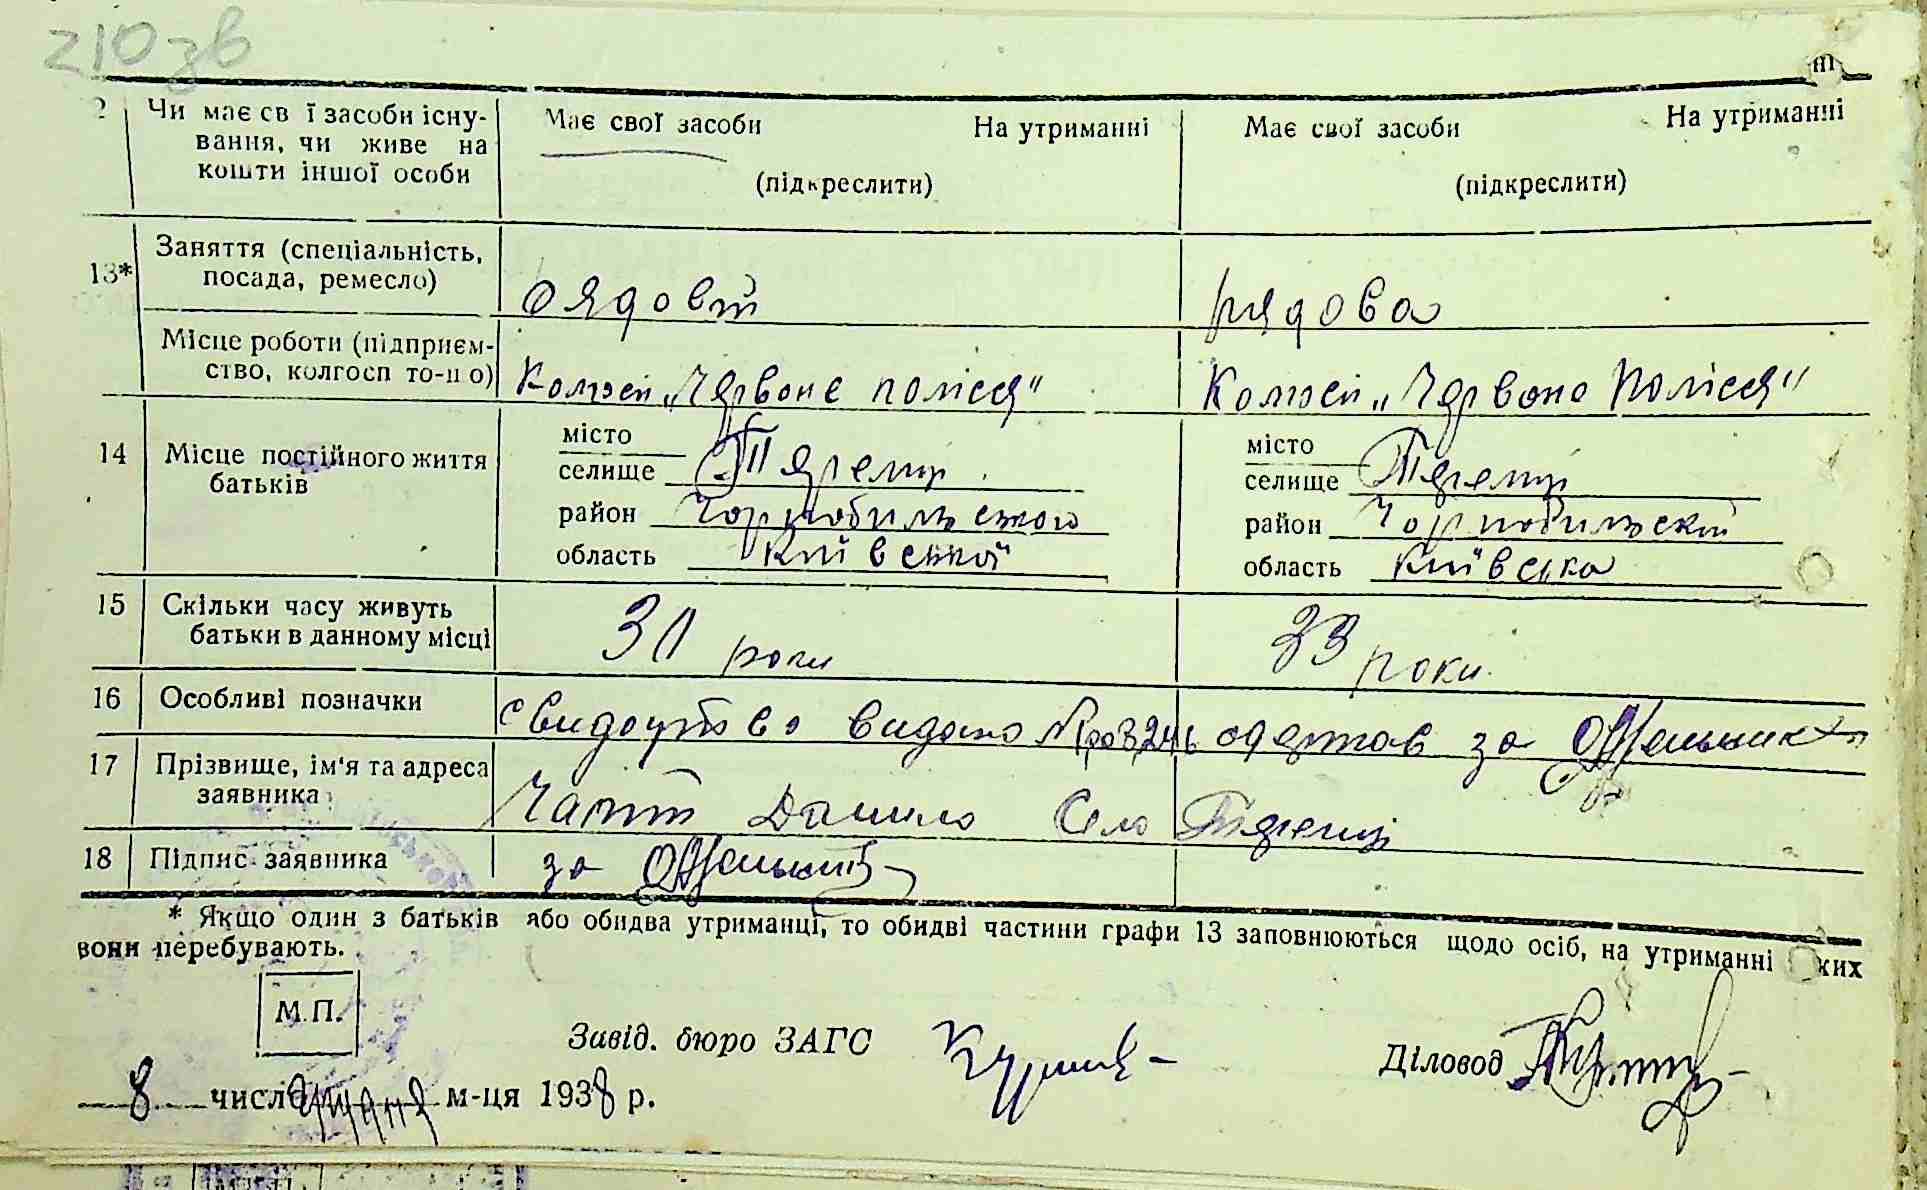 210 зв
2 Чи має св ї засоби існу-
вання, чи живе на
кошти іншої особи
Має свої засоби На утриманні
(підкреслити)
Має свої засоби На утриманні
(підкреслити)
13* Заняття (спеціальність,
посада, ремесло)
рядовий
рядова
Місце роботи (підприєм-
ство, колгосп то-що)
Колгосп „Червоне полісся"
Колгосп „Червоне Полісся"
14 Місце постійного життя
батьків
місто
селище
район Чорнобильського
область Київської
місто
селище
район Чорнобильський
область Київська
15 Скільки часу живуть
батьки в данному місці
31 роки
33 роки
16 Особливі позначки
свидоцтво видано одержав за
17 Прізвище, ім'я та адреса
заявника
Данило Село
18 Підпис заявника
за
* Якщо один з батьків або обидва утриманці, то обидві частини графи 13 заповнюються щодо осіб, на утриманні яких
вони перебувають.
М.П.
Завід. бюро ЗАГС
Діловод
8 числа м-ця 1938 р.